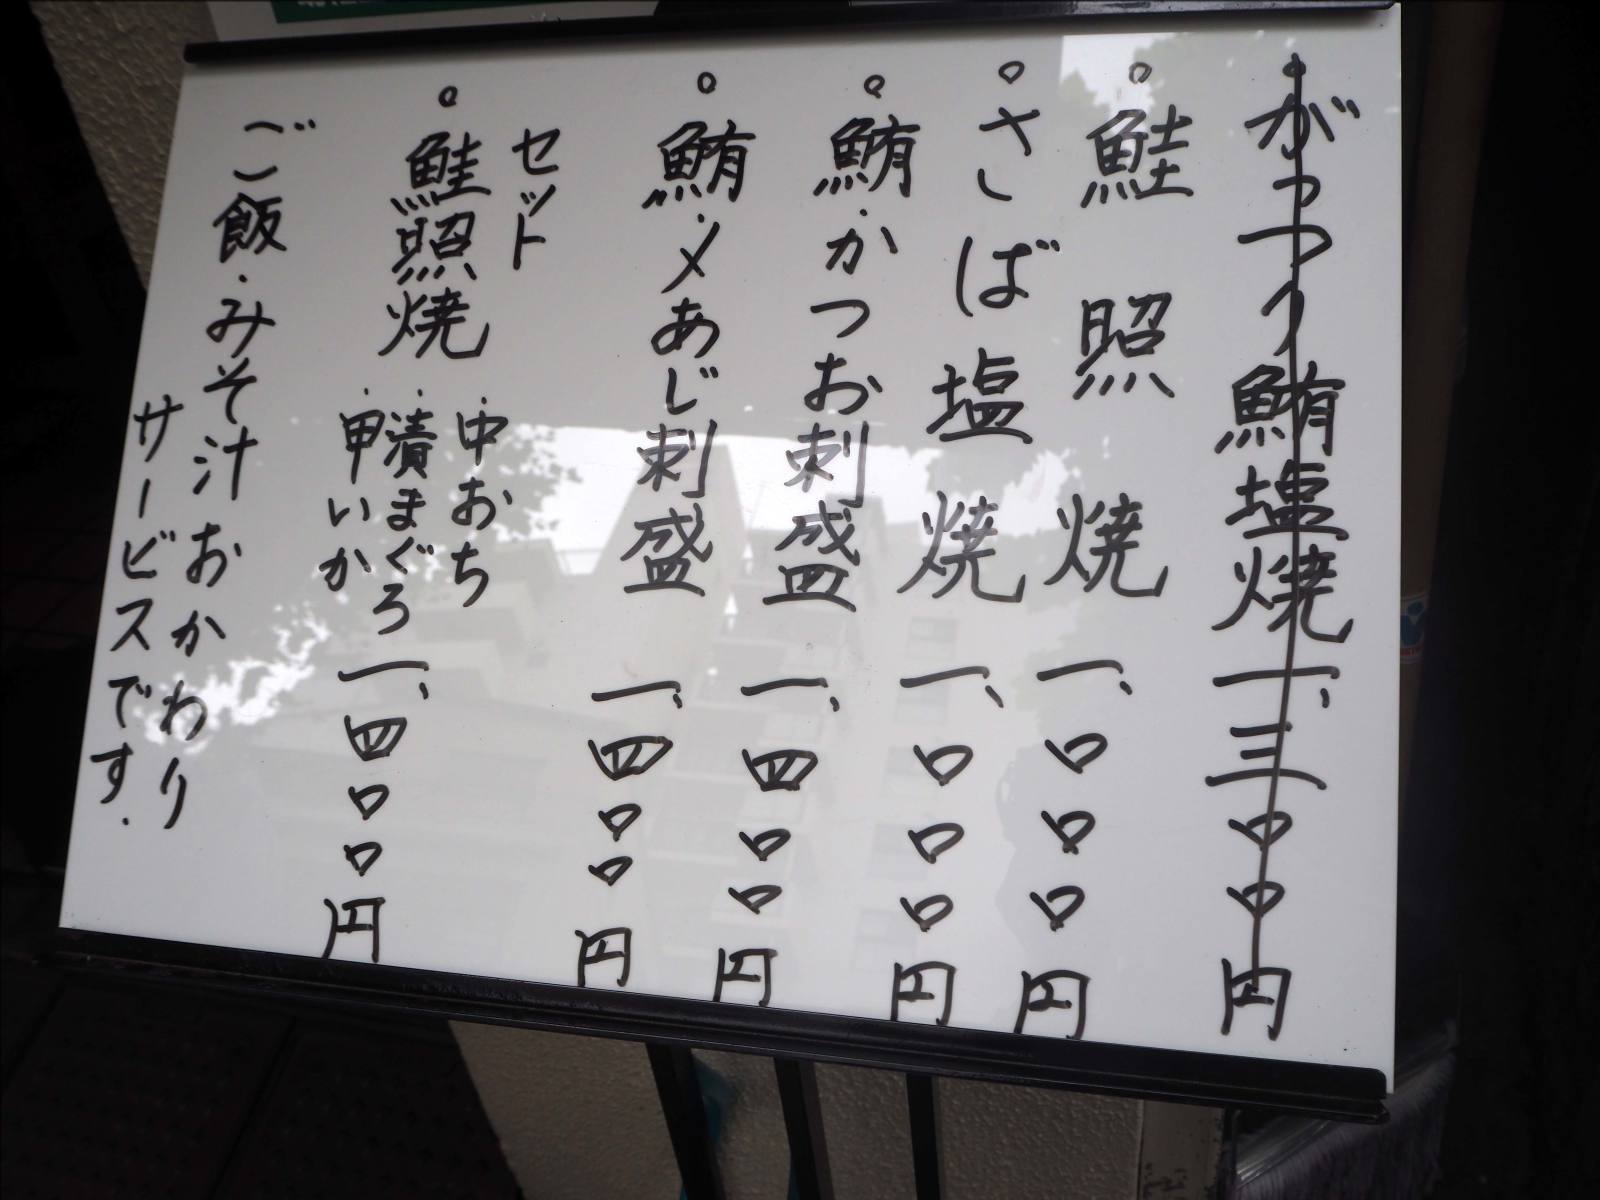 がっつり鮪塩焼一、三〇〇円
鮭照焼一、〇〇〇円
さば塩焼一、〇〇〇円
鮪・かつお刺盛一、四〇〇円
鮪・〆あじ刺盛一、四〇〇円
セット
鮭照焼
・中おち
・漬まぐろ
・甲いか
一、四〇〇円
ご飯・みそ汁おかわり
サービスです.